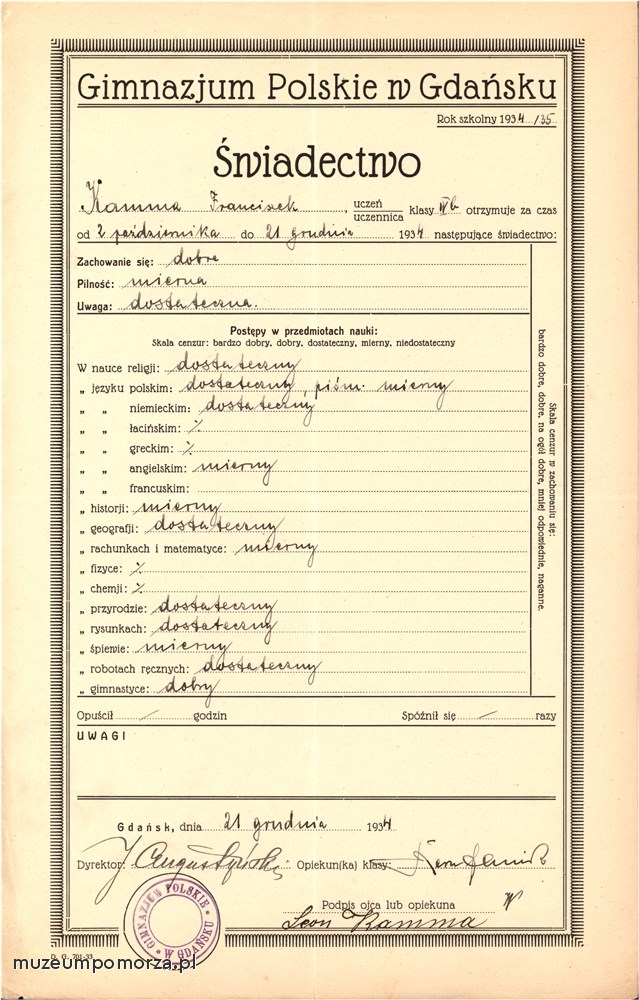 Gimnazjum Polskie w Gdańsku
Rok szkolny 1934/35.
Świadectwo
Kamma Franciszek, uczeń
uczennica klasy IVb otrzymuje za czas
od 2 października do 21 grudnia 1934 następujące świadectwo:
Zachowanie się: dobre
Pilność: mierna
Uwaga: dostateczna.
Postępy w przedmiotach nauki:
Skala cenzur: bardzo dobry, dobry, dostateczny, mierny, niedostateczny
W nauce religji: dostateczny
„ języku polskim: dostateczny, piśm. mierny
„ „ niemieckim: dostateczny
„ „ łacińskim: ⁒
„ „ greckim: ⁒
„ „ angielskim: mierny
„ „ francuskim:
„ historji: mierny
„ geografji: dostateczny
„ rachunkach i matematyce: mierny
„ fizyce: ⁒
„ chemji: ⁒
„ przyrodzie: dostateczny
„ rysunkach: dostateczny
„ śpiewie: mierny
„ robotach ręcznych: dostateczny
„ gimnastyce: dobry
Skala cenzur w zachowaniu się:
bardzo dobre, dobre, na ogół dobre, mniej odpowiednie, naganne.
Opuścił / godzin Spóźnił się / razy
UWAGI
Gdańsk, dnia 21 grudnia 1934
Dyrektor: J Augustyński Opiekun(ka) klasy:
Podpis ojca lub opiekuna
Leon Kamma
GIMNAZJUM POLSKIE
W GDAŃSKU
D. G. 701-33
muzeumpomorza.pl